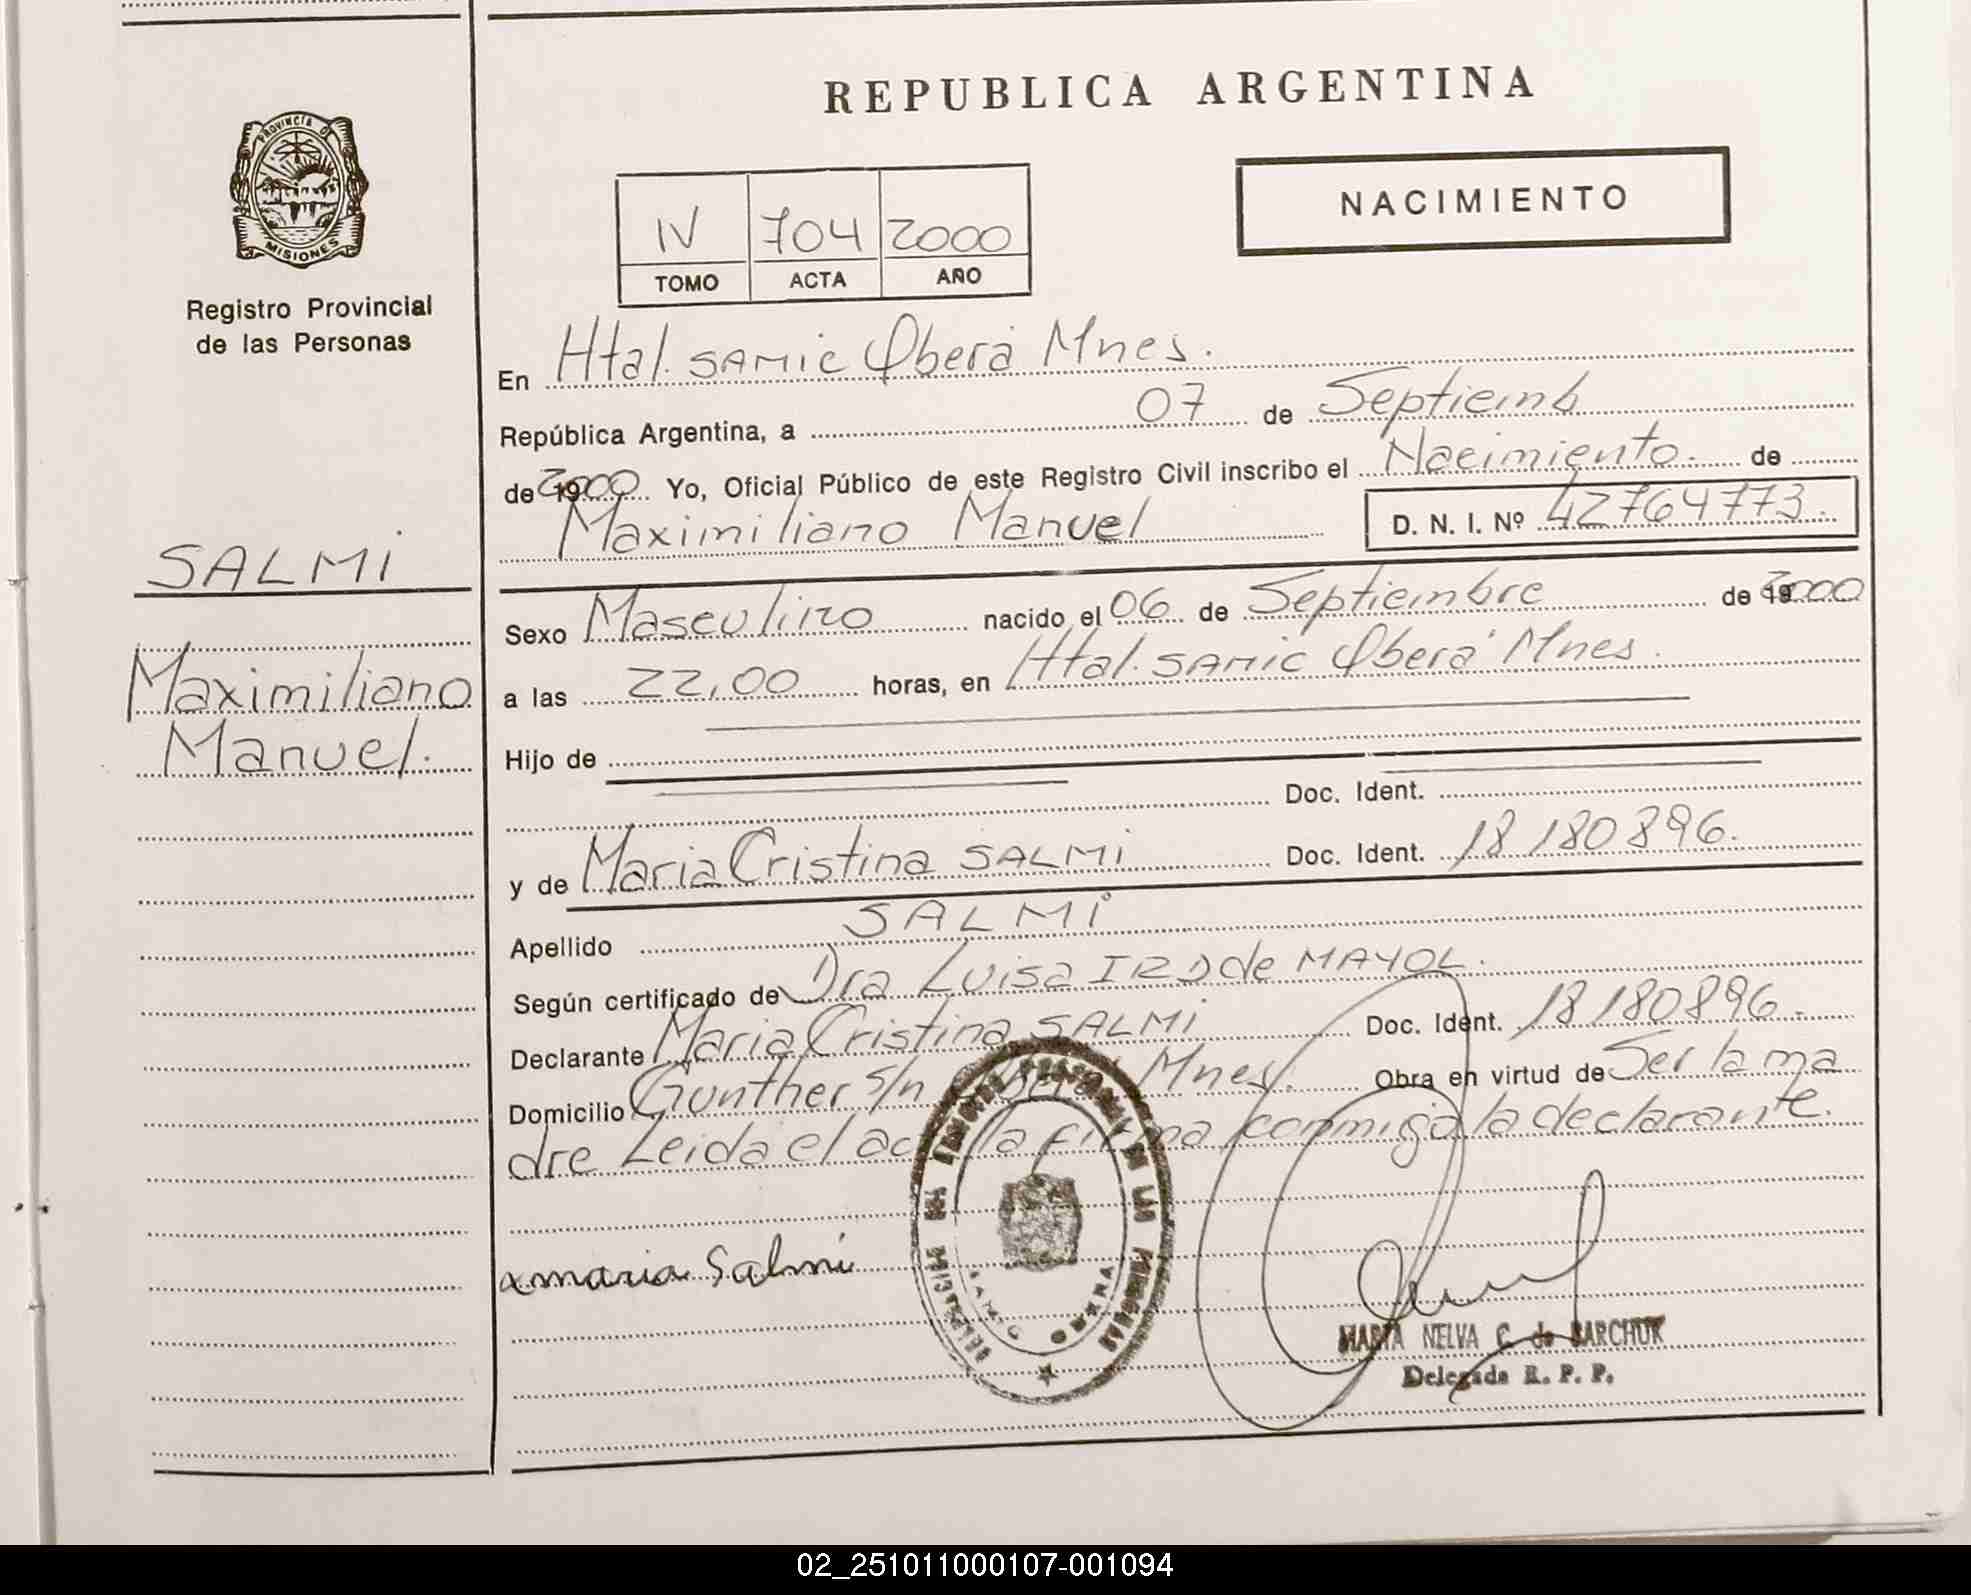 REPUBLICA ARGENTINA
PROVINCIA DE
MISIONES
Registro Provincial
de las Personas
NACIMIENTO
IV 704 2000
TOMO ACTA AÑO
SALMI
Maximiliano
Manuel.
En Htal. SAMIC Oberá Mnes.
República Argentina, a 07 de Septiemb
de 2000 Yo, Oficial Público de este Registro Civil inscribo el Nacimiento. de
Maximiliano Manuel D. N. I. Nº 42764773.
Sexo Masculino nacido el 06 de Septiembre de 2000
a las 22,00 horas, en Htal. SAMIC Oberá Mnes.
Hijo de
Doc. Ident.
y de Maria Cristina SALMI Doc. Ident. 18180896.
Apellido SALMI
Según certificado de Dra Luisa de MAYOL.
Declarante Maria Cristina SALMI Doc. Ident. 18180896.
Domicilio Gunther S/n Oberá Mnes. Obra en virtud de Ser la ma
dre Leida el acta la firma conmigo la declarante.
x maria Salmi
SAMIC OBERA
MARIA NELVA C. de BARCHUK
Delegada R. P. P.
02_251011000107-001094